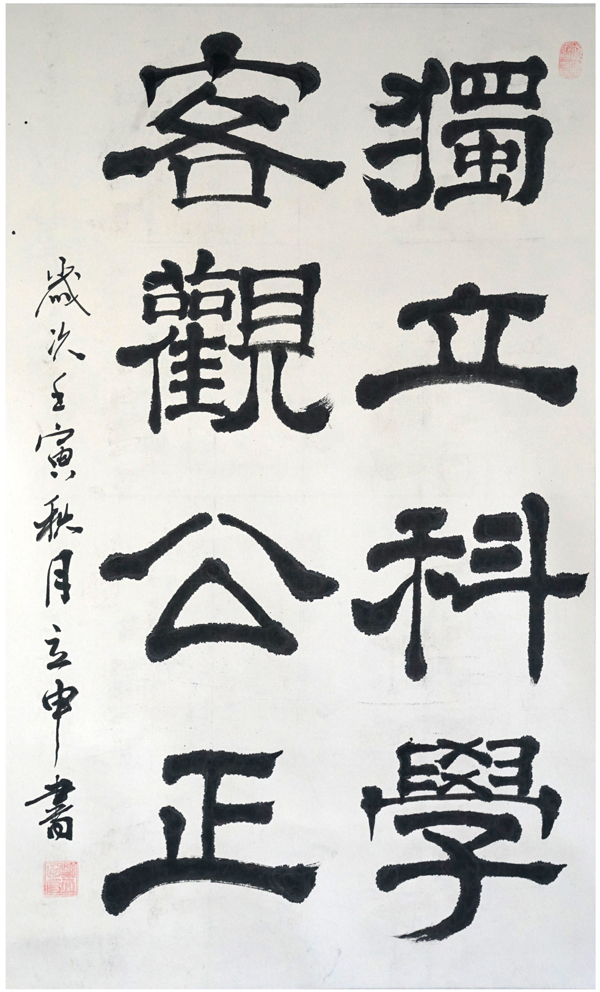 獨立科學
客觀公正
歲次壬寅秋月立申書